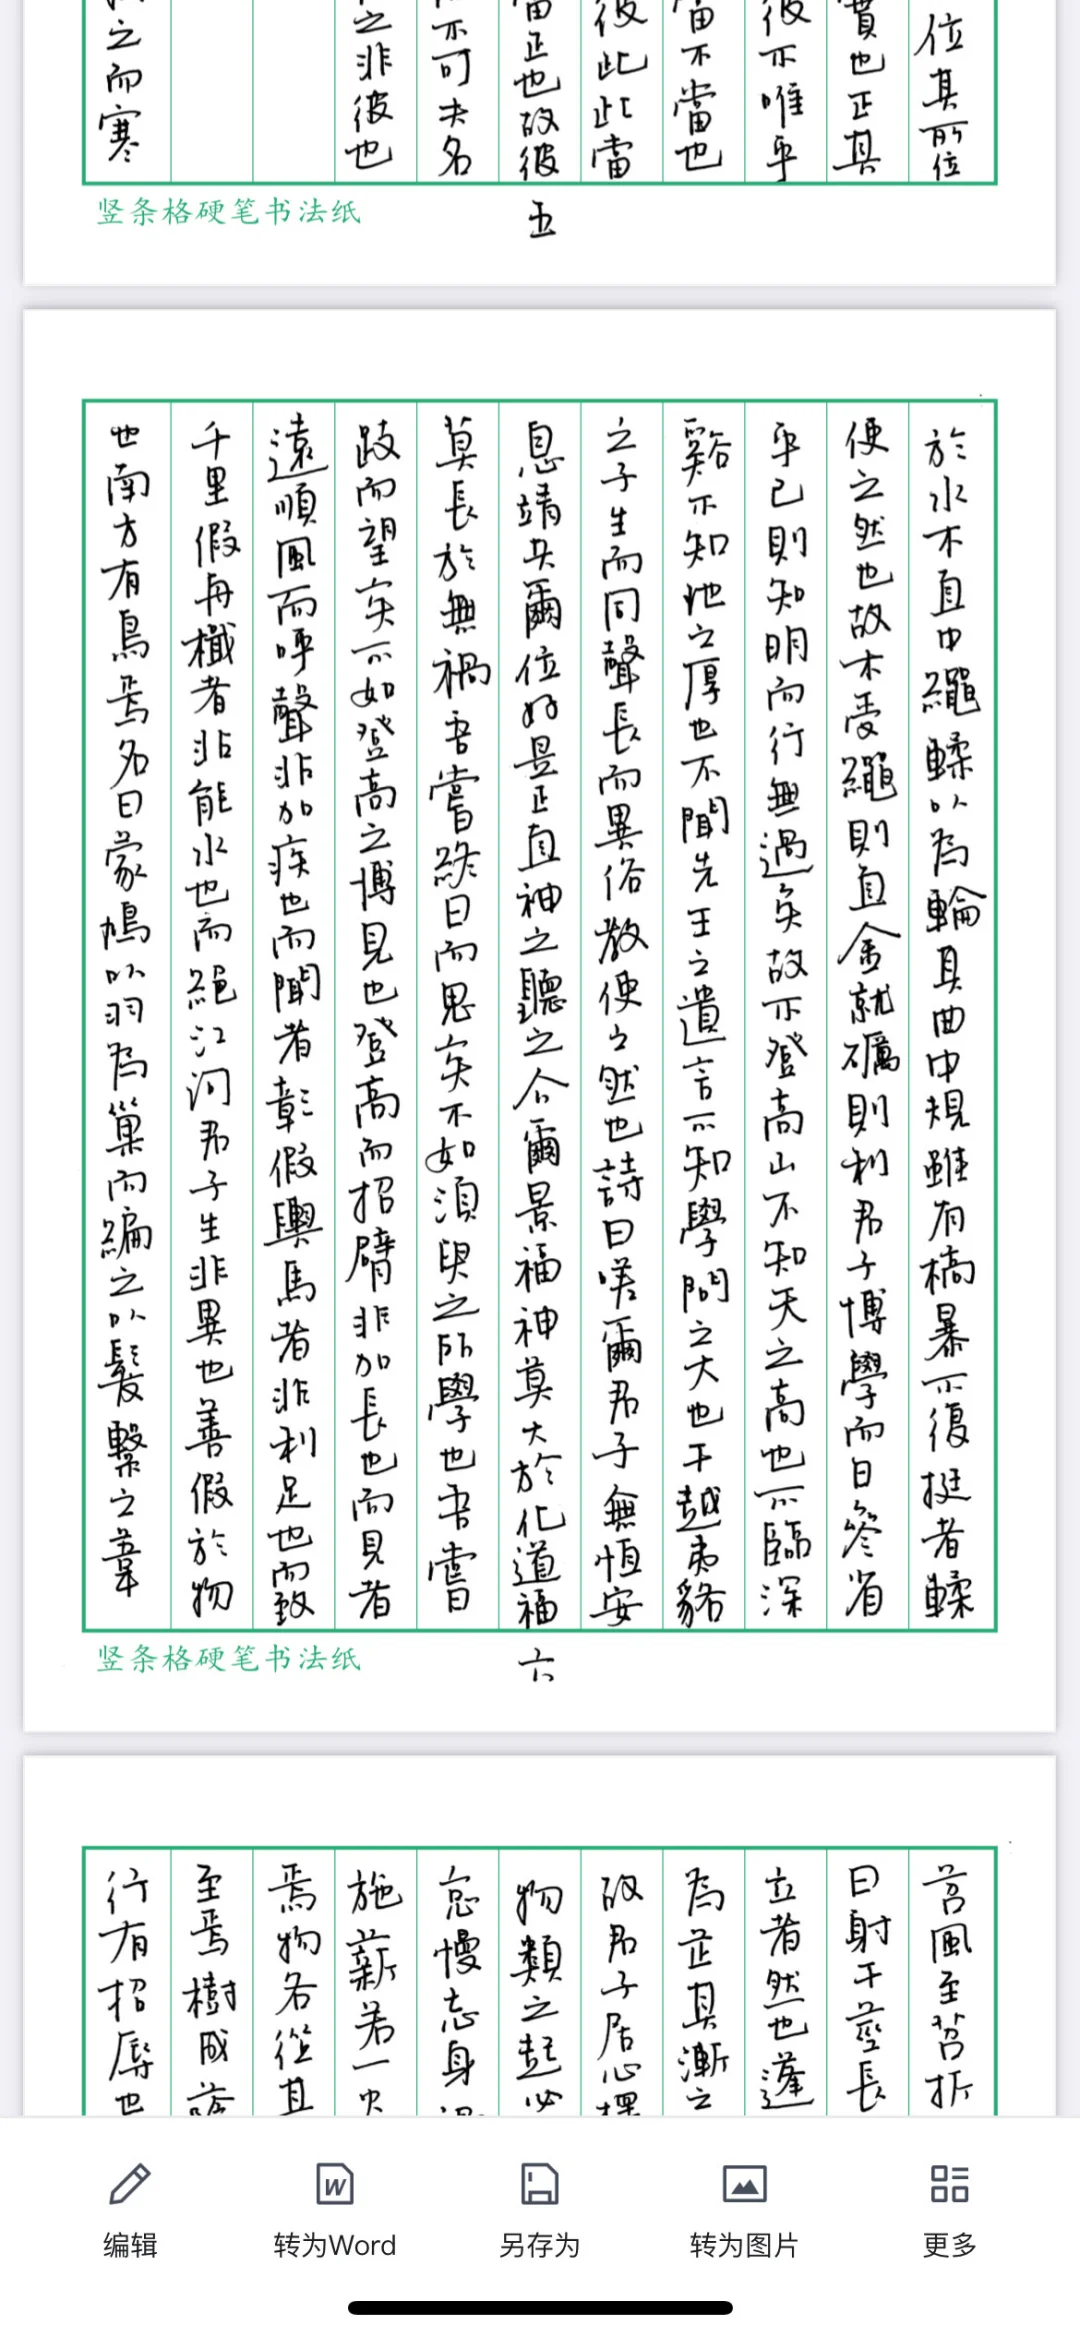 位其所位
實也正其
彼不唯乎
當不當也
彼此此當
當正也故彼
不可夫名
之非彼也
之而寒
竖条格硬笔书法纸
五
於水木直中繩輮以為輪其曲中規雖有槁暴不復挺者輮
使之然也故木受繩則直金就礪則利君子博學而日參省
乎己則知明而行無過矣故不登高山不知天之高也不臨深
谿不知地之厚也不聞先王之遺言不知學問之大也干越夷貉
之子生而同聲長而異俗教使之然也詩曰嗟爾君子無恆安
息靖共爾位好是正直神之聽之介爾景福神莫大於化道福
莫長於無禍吾嘗終日而思矣不如須臾之所學也吾嘗
跂而望矣不如登高之博見也登高而招臂非加長也而見者
遠順風而呼聲非加疾也而聞者彰假輿馬者非利足也而致
千里假舟檝者非能水也而絕江河君子生非異也善假於物
也南方有鳥焉名曰蒙鳩以羽為巢而編之以髮繫之葦
竖条格硬笔书法纸
六
苕風至苕折
曰射干莖長
立者然也蓬
為芷其漸之
故君子居必擇
物類之起必
怠慢忘身
施薪若一火
焉物各從其
至焉樹成蔭
行有招辱也
编辑
转为Word
另存为
转为图片
更多